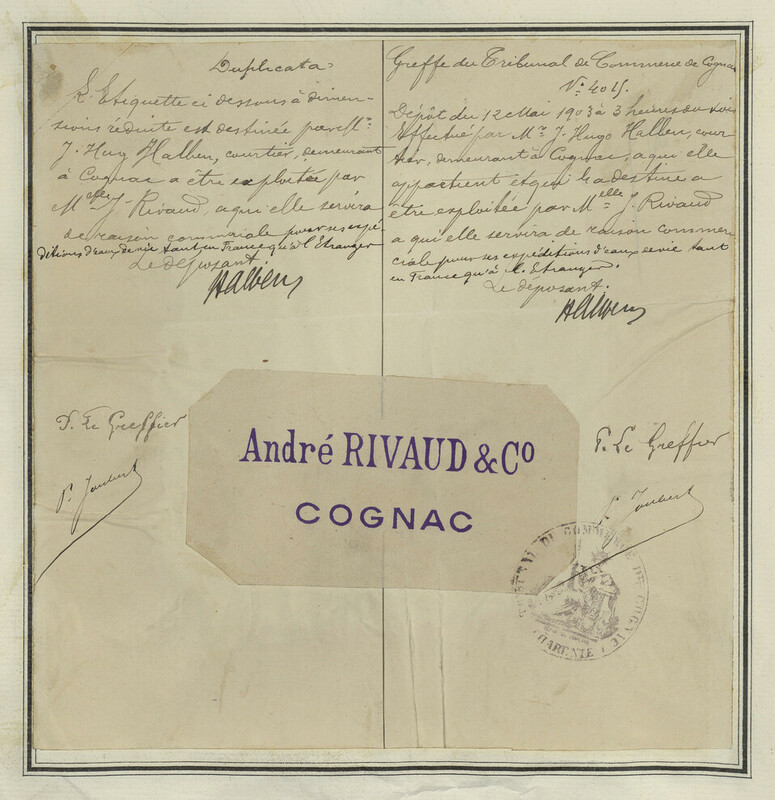 Duplicata
L'Etiquette ci dessous à dimen-
sions réduite est destinée par Mr.
J. Hugo Halben, courtier, demeurant
à Cognac a être exploitée par
Melle J. Rivaud, a qui elle servira
de raison commerciale pour ses expé-
ditions d'eaux de vie tant en France qu'à l'Etranger
Le déposant.
Halben
Greffe du Tribunal de Commerce de Cognac
No. 4015.
Dépôt du 12 Mai 1903 à 3 heures du soir
Effectué par Mr. J. Hugo Halben, cour-
tier, demeurant à Cognac, a qui elle
appartient et qui la destine a
être exploitée par Melle J. Rivaud
a qui elle servira de raison commer-
ciale pour ses expéditions d'eaux de vie tant
en France qu'à l'Etranger.
Le déposant.
Halben
P. Le Greffier
P. Joubert
André RIVAUD & Co
COGNAC
P. Le Greffier
P. Joubert
TRIBUNAL DE COMMERCE DE COGNAC
CHARENTE